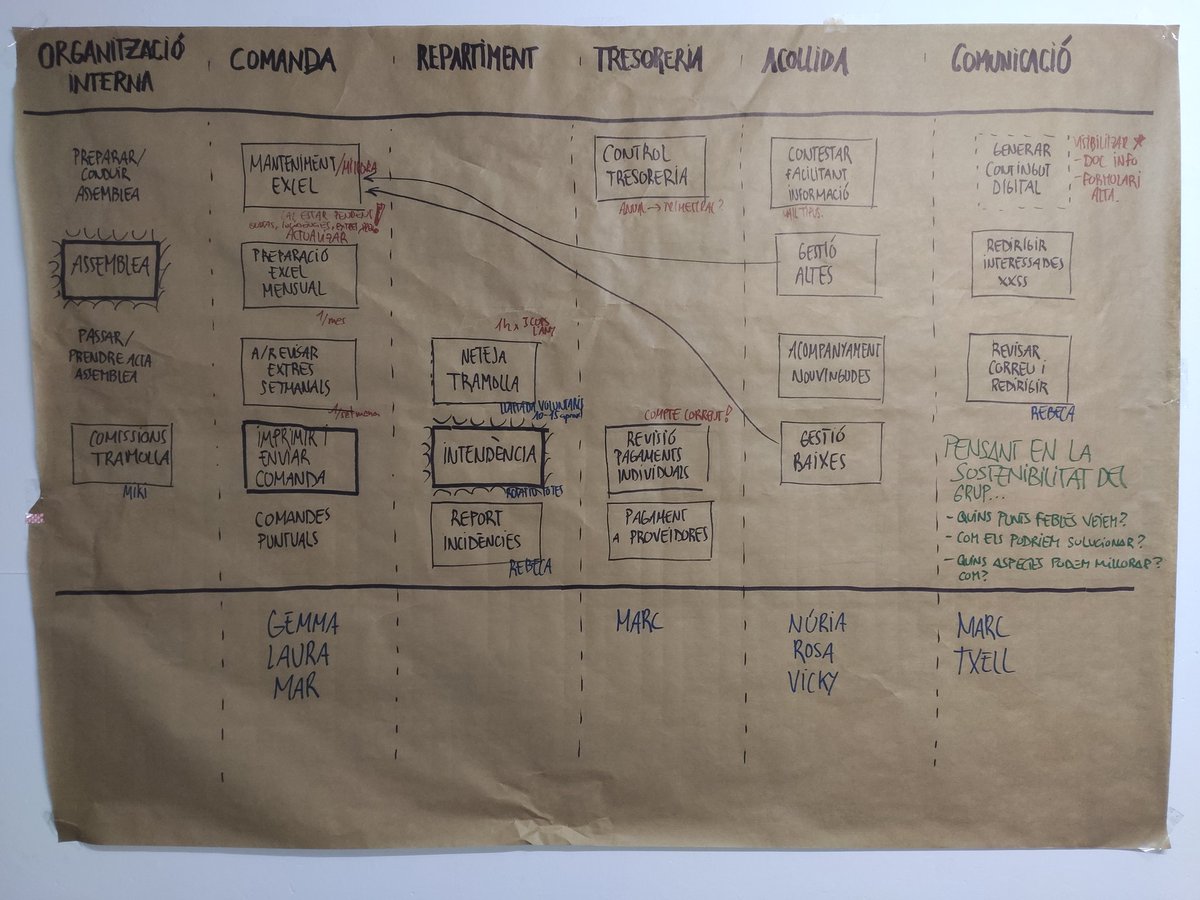 ORGANITZACIÓ
INTERNA
COMANDA
REPARTIMENT
TRESORERIA
ACOLLIDA
COMUNICACIÓ
PREPARAR/
CONDUIR
ASSEMBLEA
ASSEMBLEA
PASSAR/
PRENDRE ACTA
ASSEMBLEA
COMISSIONS
TRAMOLLA
MIKI
MANTENIMENT/MILLORA
EXCEL
CAL ESTAR PENDENT
ACTUALITZAR
PREPARACIÓ
EXCEL
MENSUAL
1/mes
A/REVISAR
EXTRES
SETMANALS
1/setmana
IMPRIMIR I
ENVIAR
COMANDA
COMANDES
PUNTUALS
GEMMA
LAURA
MAR
1h x 3 COPS
L'ANY
NETEJA
TRAMOLLA
VOLUNTARIS
10-15
INTENDÈNCIA
REPORT
INCIDÈNCIES
REBECA
CONTROL
TRESORERIA
ANUAL → TRIMESTRAL?
COMPTE CORRENT!
REVISIÓ
PAGAMENTS
INDIVIDUALS
PAGAMENT
A PROVEÏDORES
MARC
CONTESTAR
FACILITANT
INFORMACIÓ
MAIL TIPUS.
GESTIÓ
ALTES
ACOMPANYAMENT
NOUVINGUDES
GESTIÓ
BAIXES
NÚRIA
ROSA
VICKY
GENERAR
CONTINGUT
DIGITAL
VISIBILITZAR
- DOC INFO
- FORMULARI
ALTA.
REDIRIGIR
INTERESSADES
XXSS
REVISAR
CORREU I
REDIRIGIR
REBECA
PENSANT EN LA
SOSTENIBILITAT DEL
GRUP...
- QUINS PUNTS FEBLES VEIEM?
- COM ELS PODRIEM SOLUCIONAR?
- QUINS ASPECTES PODEM MILLORAR?
COM?
MARC
TXELL